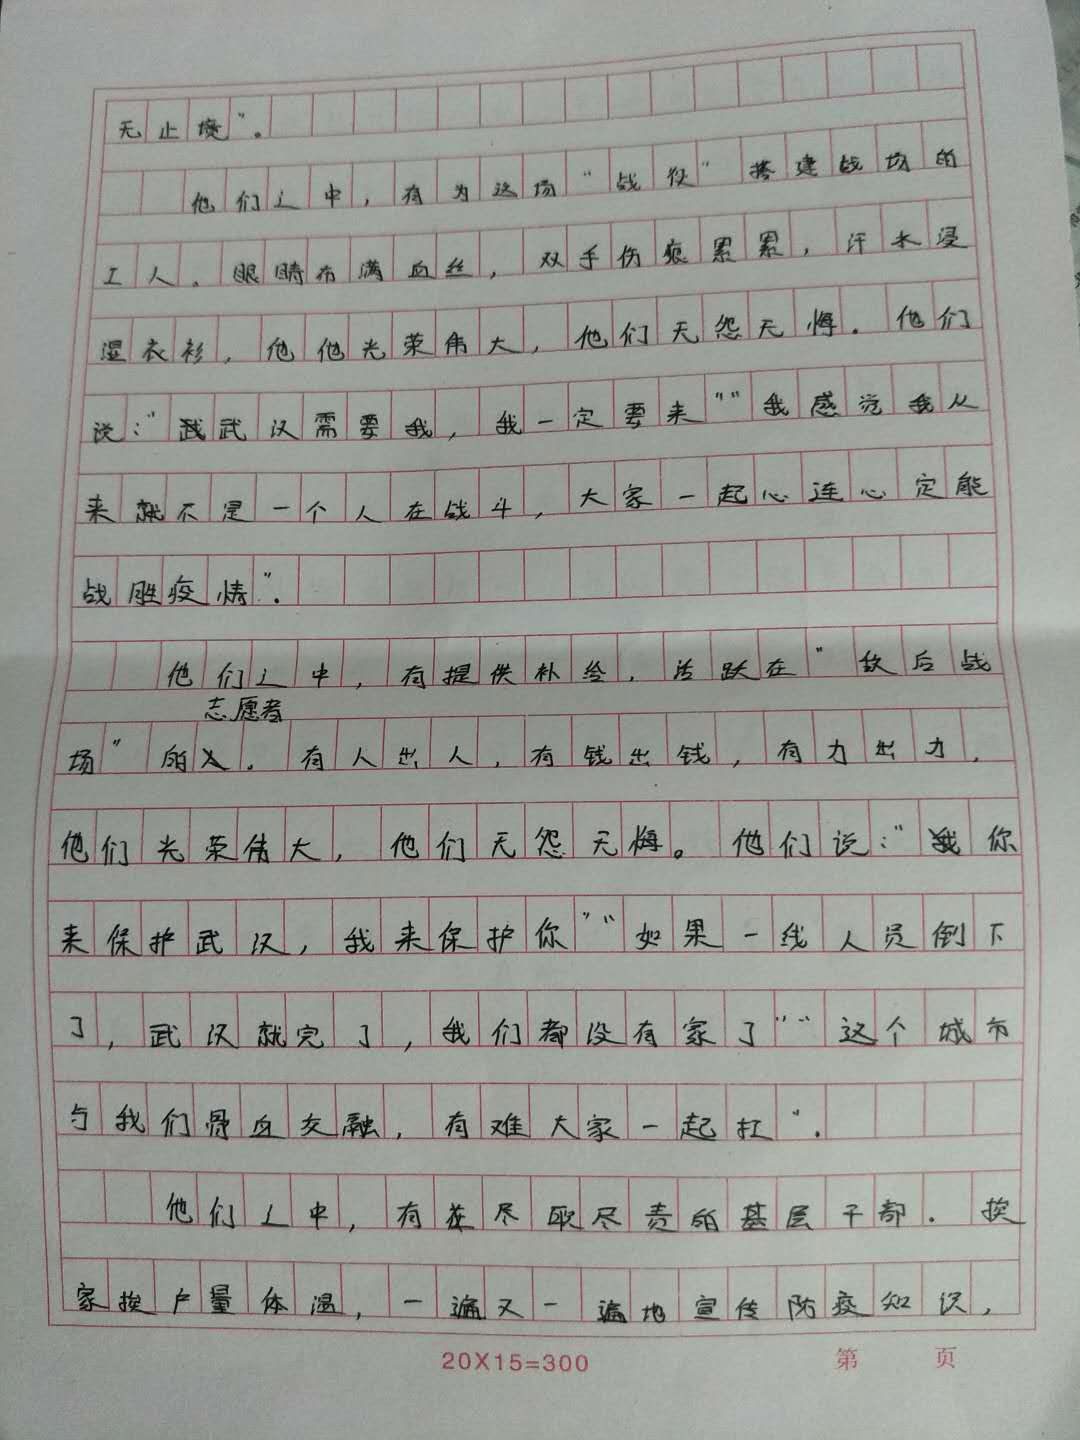 无止境”。
他们之中，有为这场“战役”搭建战场的
工人。眼睛布满血丝，双手伤痕累累，汗水浸
湿衣衫，他他光荣伟大，他们无怨无悔。他们
说：“武汉需要我，我一定要来”“我感觉我从
来就不是一个人在战斗，大家一起心连心定能
战胜疫情”。
他们之中，有提供补给，活跃在“敌后战
志愿者
场”的。有人出人，有钱出钱，有力出力，
他们光荣伟大，他们无怨无悔。他们说：“你
来保护武汉，我来保护你”“如果一线人员倒下
了，武汉就完了，我们都没有家了”“这个城市
与我们骨血交融，有难大家一起扛”。
他们之中，有尽职尽责的基层干部。挨
家挨户量体温，一遍又一遍地宣传防疫知识，
20X15=300
第 页